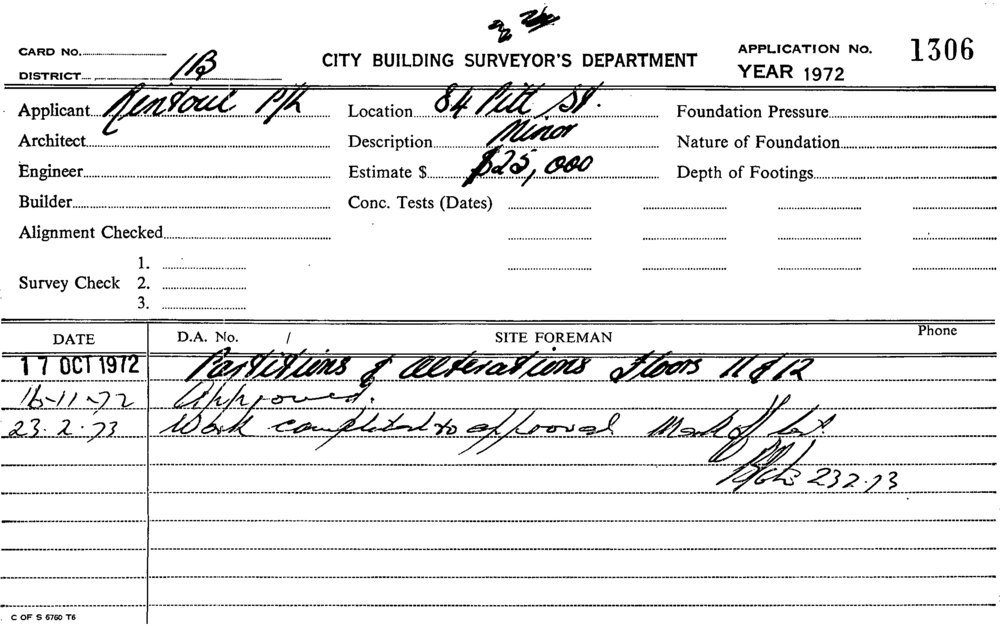 CARD No.
DISTRICT 1B
CITY BUILDING SURVEYOR'S DEPARTMENT
APPLICATION No. 1306
YEAR 1972
Applicant Rentoul P/L
Location 84 Pitt St.
Foundation Pressure
Architect
Description Minor
Nature of Foundation
Engineer
Estimate $ $25,000
Depth of Footings
Builder
Conc. Tests (Dates)
Alignment Checked
Survey Check
1.
2.
3.
DATE
D.A. No. /
SITE FOREMAN
Phone
17 OCT 1972 Partitions & Alterations Floors 11 & 12
16-11-72 Approved.
23.2.73 Work completed to approval Mark off
232.73
C OF S 6760 T6